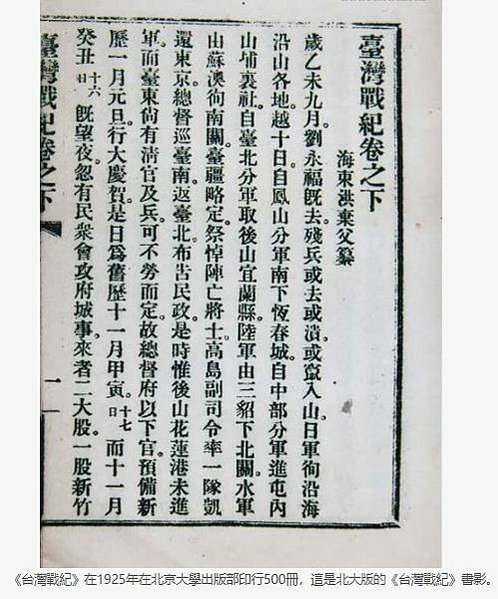 臺灣戰紀卷之下
海東洪棄父纂
歲乙未九月。劉永福旣去。殘兵或去或潰。或竄入山。日軍徇沿海
沿山各地。越十日。自鳳山分軍南下恆春城。自中部分軍進屯內
山埔裏社。自臺北分軍取後山宜蘭縣。陸軍由三貂下北關。水軍
由蘇澳徇南關。臺疆略定。祭悼陣亡將士。高島副司令率一隊凱
還東京。總督巡臺南。返臺北。布告民政。是時惟後山花蓮港未進
軍。而臺東尙有清官及兵。可不勞而定。故總督府以下官。預備新
歷一月元旦。行大慶賀。是日爲舊歷十一月甲寅。十七日而十一月
癸丑十六日旣望夜。忽有民衆會攻府城事。來者二大股。一股新竹
臺灣戰紀卷之下
一
《台灣戰紀》在1925年在北京大學出版部印行500冊，這是北大版的《台灣戰紀》書影。